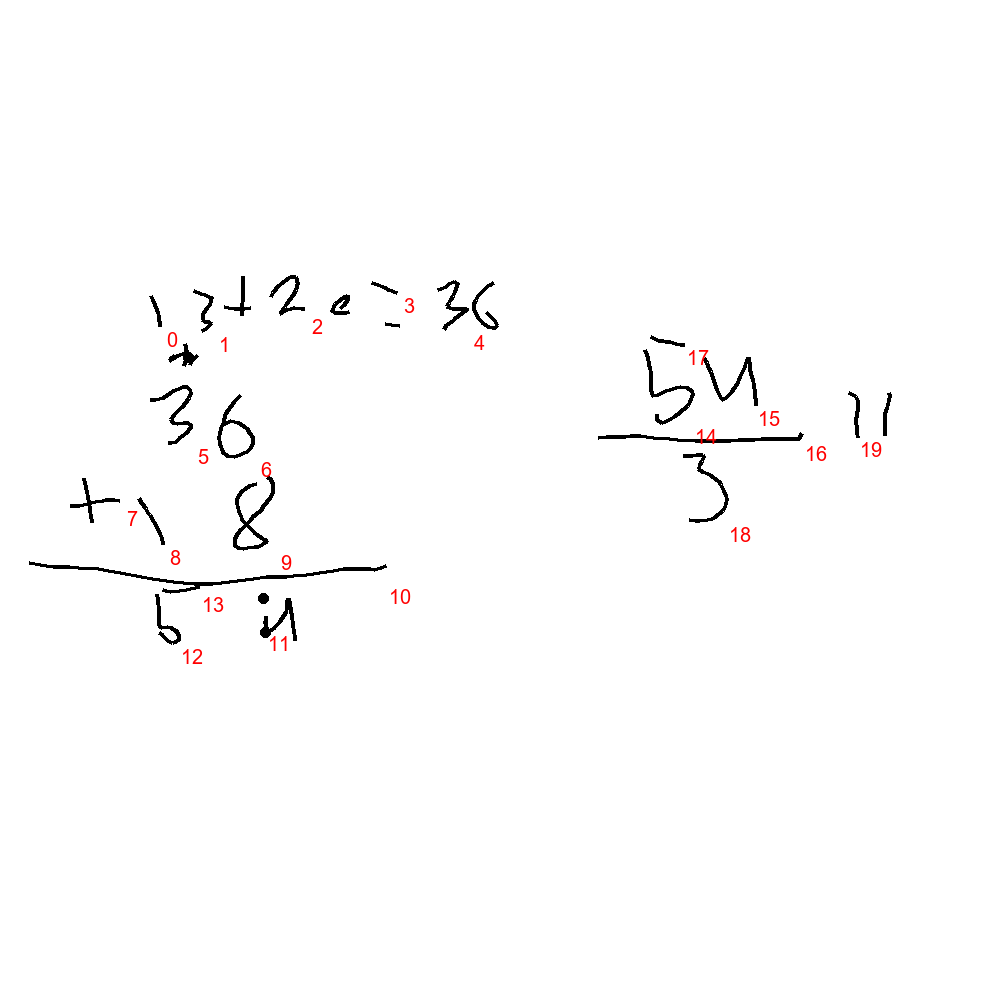 13+2e=36
0 1 2 3 4
+
36
5 6
+18
7 8 9
10
54
12 13 11
54
17 14 15
16
3
18
11
19